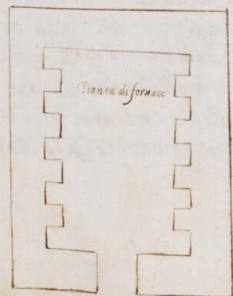 Pianta di fornace